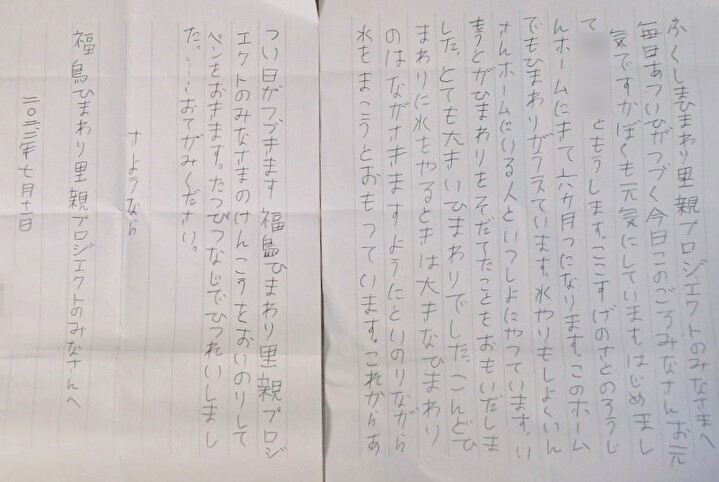 ふくしまひまわり里親プロジエクトのみなさまへ
毎日あついひがつづく今日このごろみなさんお元
気ですかぼくも元気にしています。はじめまし
て ともうします。ここすげのさとのろうじ
んホームにきて六カ月つになります。このホーム
でもひまわりがフえています。水やりもしよくいん
さんホームにいる人といつしよにやつています。い
もうとがひまわりをそだてたことをおもいだしま
した。とても大きいひまわりでした。こんどひ
まわりに水をやるときは大きなひまわり
のはながさきますようにといのりながら
水をまこうとおもつています。これからあ
つい日がつづきます 福島ひまわり里親プロジ
エクトのみなさまのけんこうをおいのりして
ペンをおきます。たつぴつなじでひつれいしまし
た。……おてがみください。
さようなら
福島ひまわり里親プロジエクトのみなさんへ
二〇二三年七月十一日